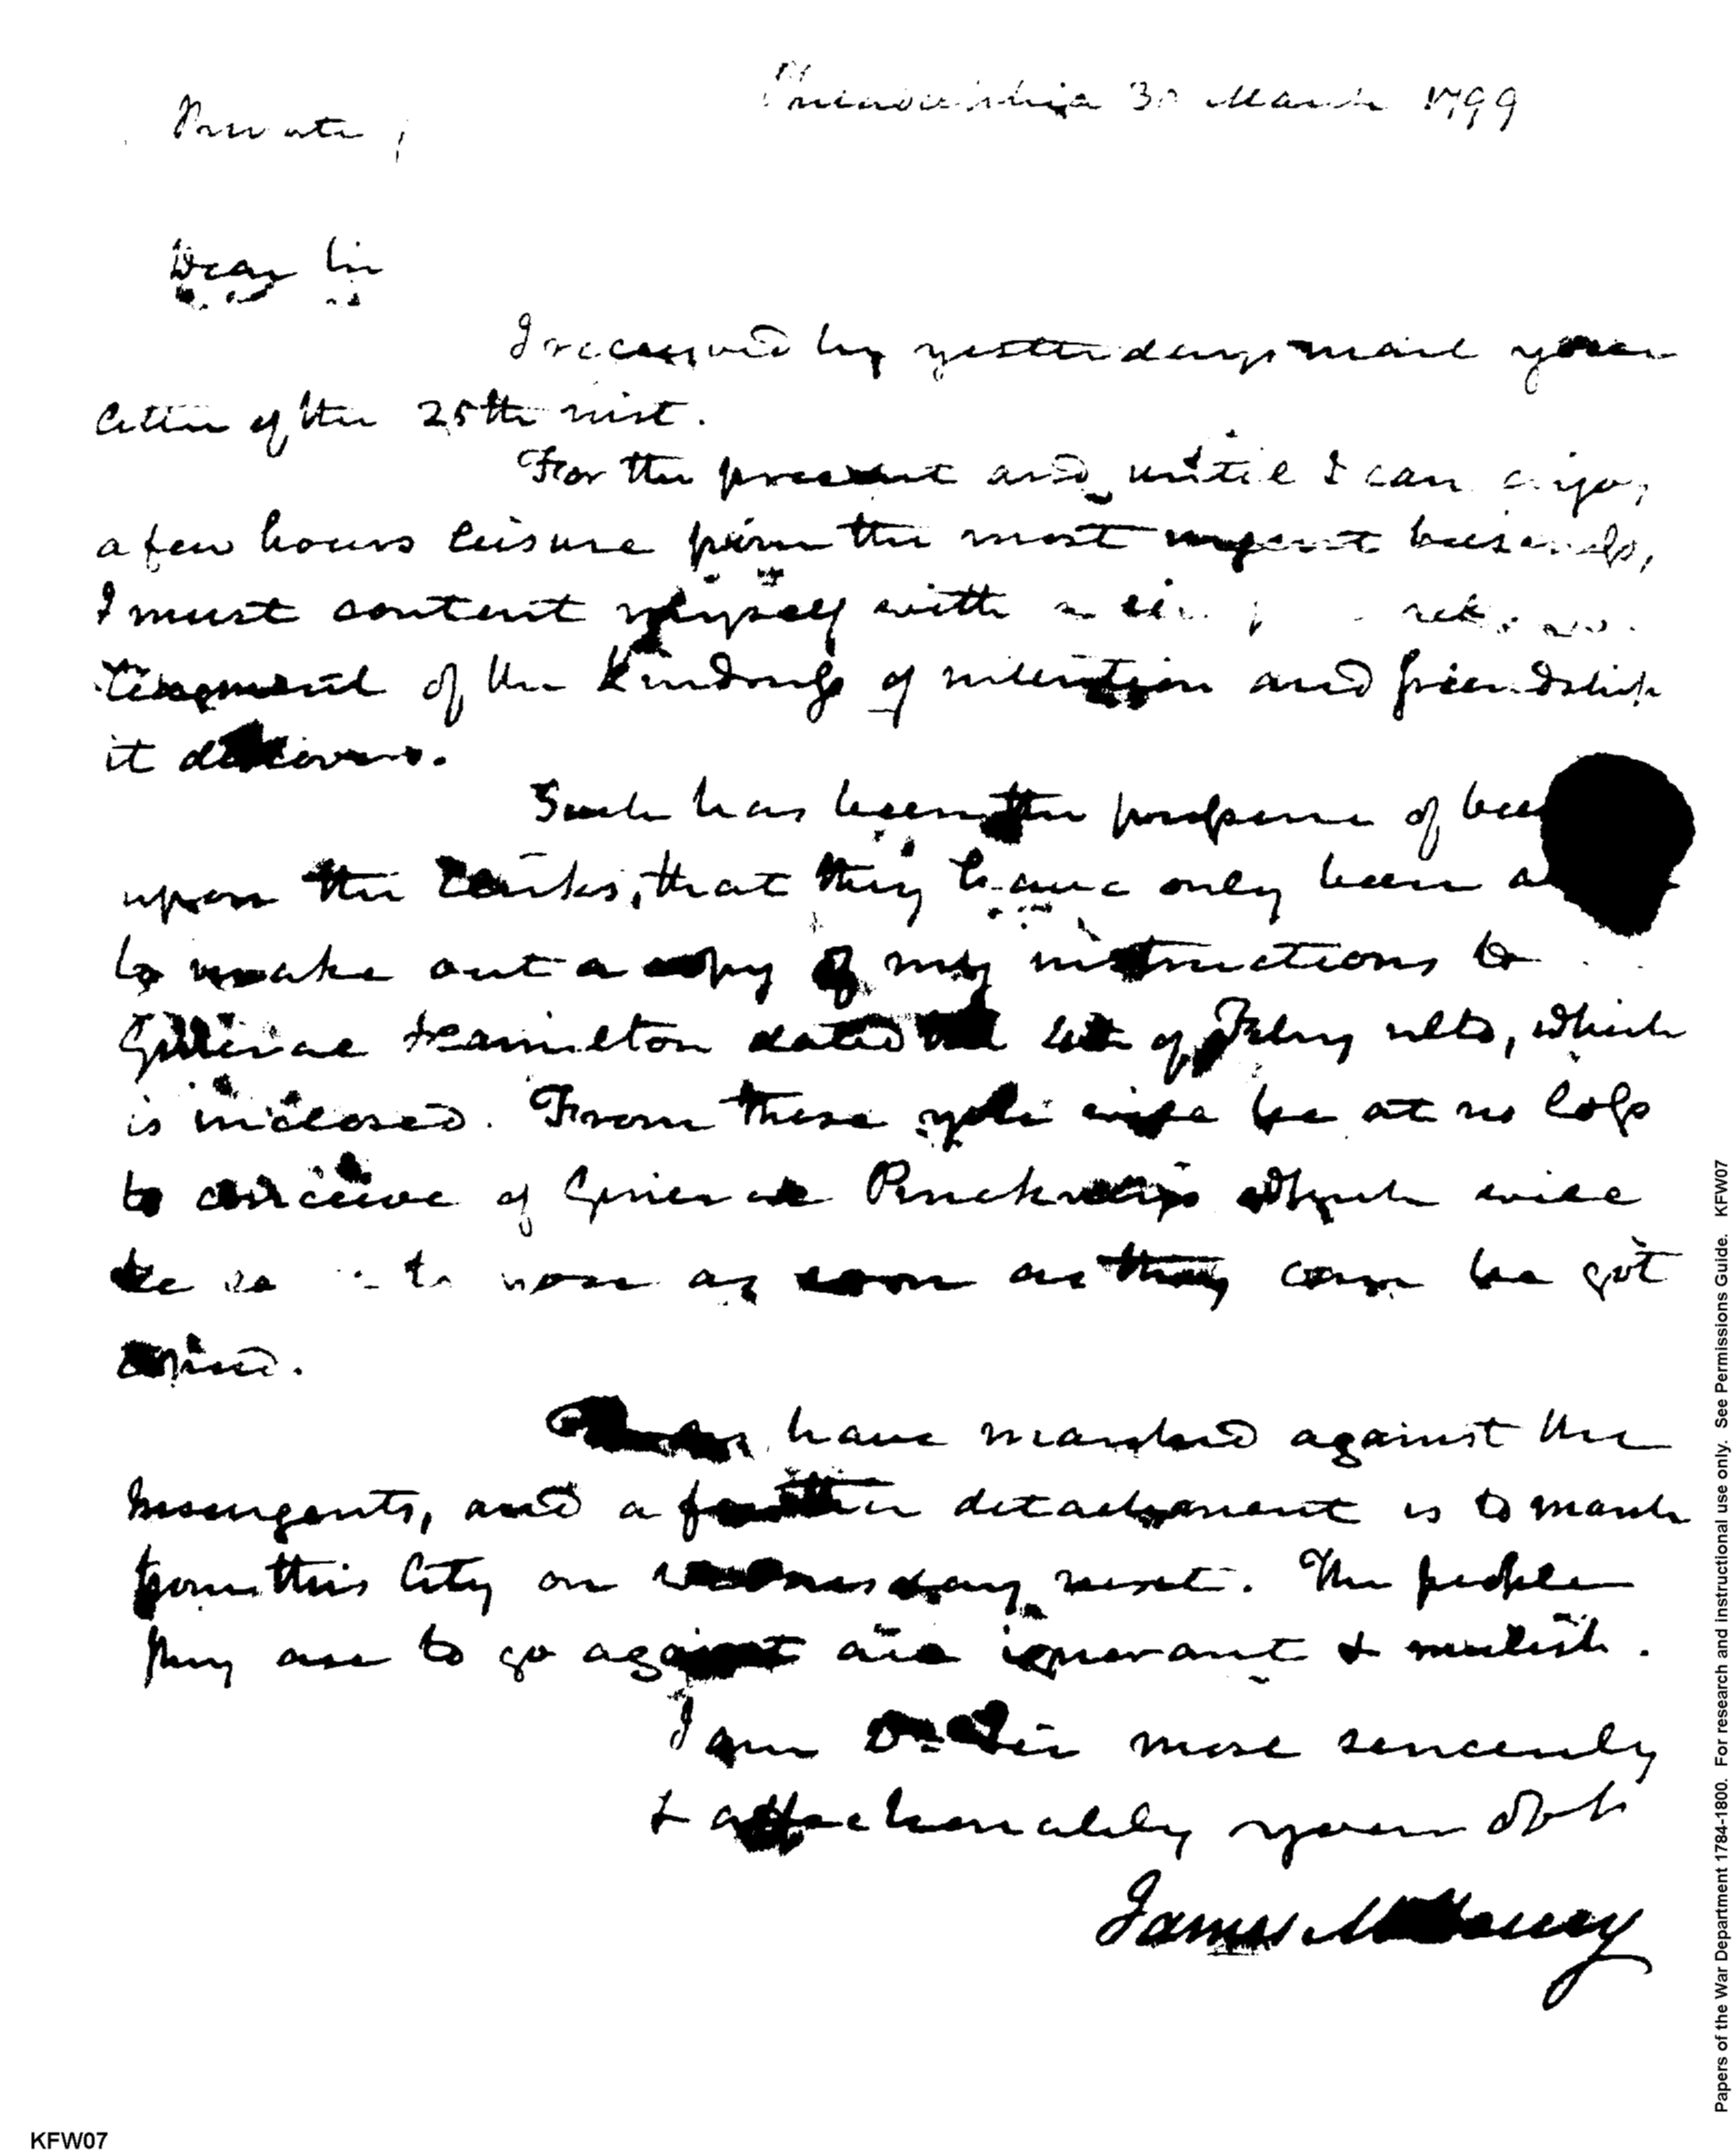 Philadelphia 30 March 1799
Private
Dear Sir
I received by yesterdays mail your
letter of the 25th inst.
For the present and until I can enjoy
a few hours leisure from the most urgent business,
I must content myself with a
of the kindness of intention and friendship
it discovers.
Such has been the pressure of
upon the Clerks, that they have only been
to make out a copy of my instructions to
General Hamilton dated the of Feby ulto, which
is inclosed. From these you will be at no loss
to conceive of General Pinckneys which will
be to you as soon as they can be got
copied.
have marched against the
Insurgents, and a further detachment is to march
from this City on Wednesday next. The people
they are to go against are ignorant & mulish.
I am Dr Sir most sincerely
& affectionately your obt
James McHenry
Papers of the War Department 1784-1800. For research and instructional use only. See Permissions Guide. KFW07
KFW07